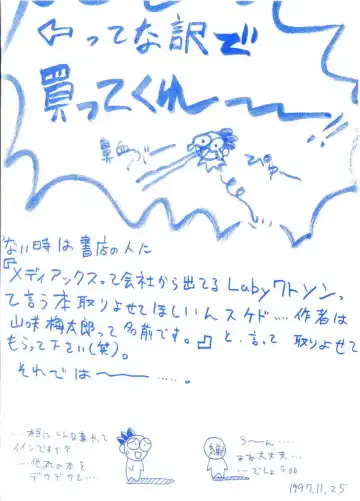 ⇦ってな訳で
買ってくれ〜〜〜
鼻血ブー
ぴゅ〜
ない時は書店の人に
『メディアックスって会社から出てるLabyワトソンっ
て言う本取りよせてほしいんスケド....作者は
山咲梅太郎って名前です。』と、言って取りよせて
もらって下さい(笑)。
それでは〜〜〜.....。
...本当にこんな事やって
イインですか?
...他社の本を
デカデカと....
う〜ん....
まぁ大丈夫...
...でしょう
編
1997.11.25